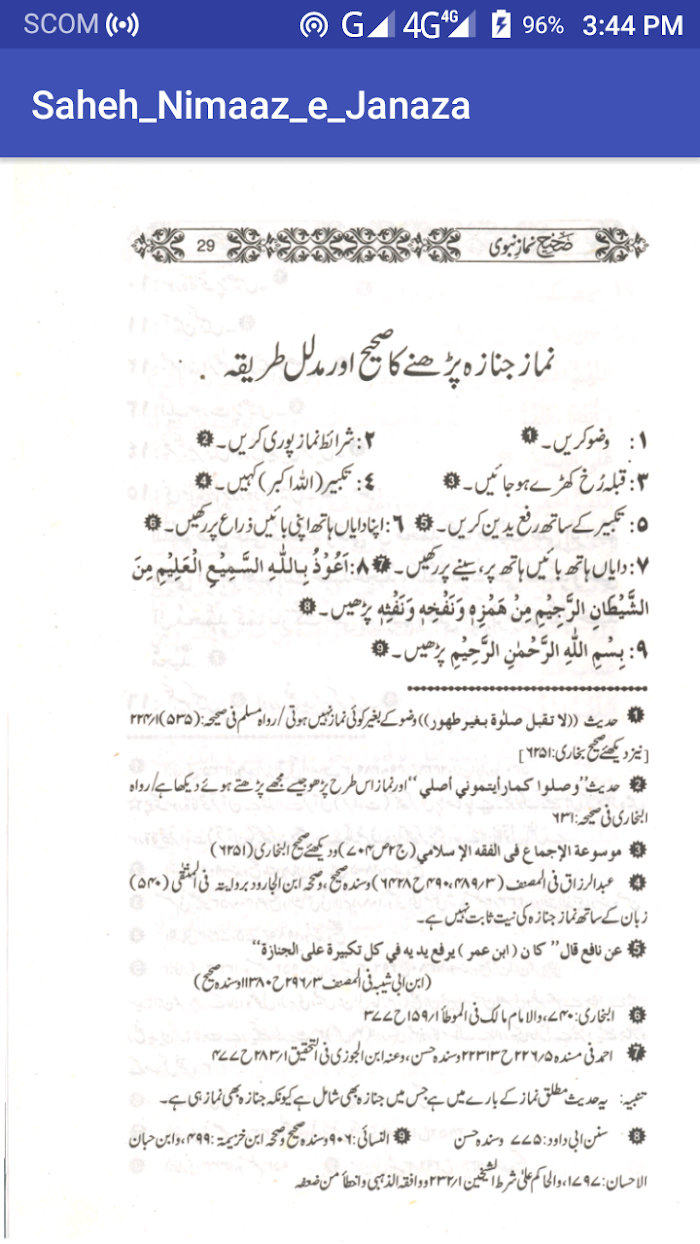 SCOM G 4G 4G 96% 3:44 PM
Saheh_Nimaaz_e_Janaza
صحیح نماز نبوی 29
نماز جنازہ پڑھنے کا صحیح اور مدلل طریقہ
۱: وضو کریں۔ 1 ۲: شرائط نماز پوری کریں۔ 2
۳: قبلہ رُخ کھڑے ہو جائیں۔ 3 ٤: تکبیر (اللہ اکبر) کہیں۔ 4
۵: تکبیر کے ساتھ رفع یدین کریں۔ 5 ٦: اپنا دایاں ہاتھ اپنی بائیں ذراع پر رکھیں۔ 6
۷: دایاں ہاتھ بائیں ہاتھ پر، سینے پر رکھیں۔ 7 ۸: اَعُوْذُ بِاللّٰهِ السَّمِيْعِ الْعَلِيْمِ مِنَ
الشَّيْطَانِ الرَّجِيْمِ مِنْ هَمْزِهٖ وَنَفْخِهٖ وَنَفْثِهٖ پڑھیں۔ 8
۹: بِسْمِ اللّٰهِ الرَّحْمٰنِ الرَّحِيْمِ پڑھیں۔ 9
1 حدیث ((لا تقبل صلوٰة بغیر طهور)) وضو کے بغیر کوئی نماز نہیں ہوتی / رواہ مسلم فی صحیحہ: (۵۳۵) ۲۲۴/۱
[نیز دیکھئے صحیح بخاری: ۶۲۵۱]
2 حدیث "وصلوا کما رأیتمونی أصلی" اور نماز اس طرح پڑھو جیسے مجھے پڑھتے ہوئے دیکھا ہے / رواہ
البخاری فی صحیحہ: ۶۳۱
3 موسوعة الإجماع فی الفقه الإسلامی (ج۲ص۷۰۴) و دیکھئے صحیح البخاری (۶۲۵۱)
4 عبدالرزاق فی المصنف (۴۸۹/۳، ۴۹۰ ح ۶۴۲۸) وسندہ صحیح، وصححہ ابن الجارود بروایتہ فی المنتقی (۵۴۰)
زبان کے ساتھ نماز جنازہ کی نیت ثابت نہیں ہے۔
5 عن نافع قال "کان (ابن عمر) یرفع یدیه فی کل تکبیرة علی الجنازة"
(ابن ابی شیبہ فی المصنف ۲۹۶/۳ ح ۱۱۳۸۰ وسندہ صحیح)
6 البخاری: ۷۴۰، والامام مالک فی الموطأ ۱۵۹/۱ ح ۳۷۷
7 احمد فی مسندہ ۲۲۶/۵ ح ۲۲۳۱۳ وسندہ حسن، وعنہ ابن الجوزی فی التحقیق ۲۸۳/۱ ح ۴۷۷
تنبیہ: یہ حدیث مطلق نماز کے بارے میں ہے جس میں جنازہ بھی شامل ہے کیونکہ جنازہ بھی نماز ہی ہے۔
8 سنن ابی داود: ۷۷۵ وسندہ حسن 9 النسائی: ۹۰۶ وسندہ صحیح وصححہ ابن خزیمۃ: ۴۹۹، وابن حبان
الاحسان: ۱۷۹۷، والحاکم علیٰ شرط الشیخین ۲۳۲/۱ ووافقہ الذہبی واخطأ من ضعفہ